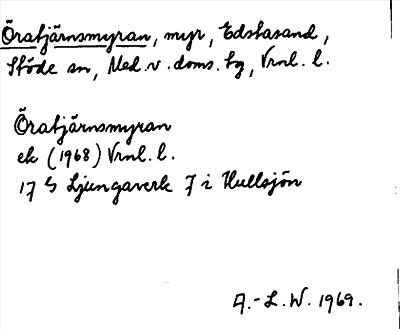 Öratjärnsmyran, myr, Edstasand,
Stöde sn, Med.v. doms. tg, Vrnl. l.
Öratjärnsmyran
ek (1968) Vrnl. l.
17 G Ljungaverk 7 i Hullsjön
A.-L.W. 1969.